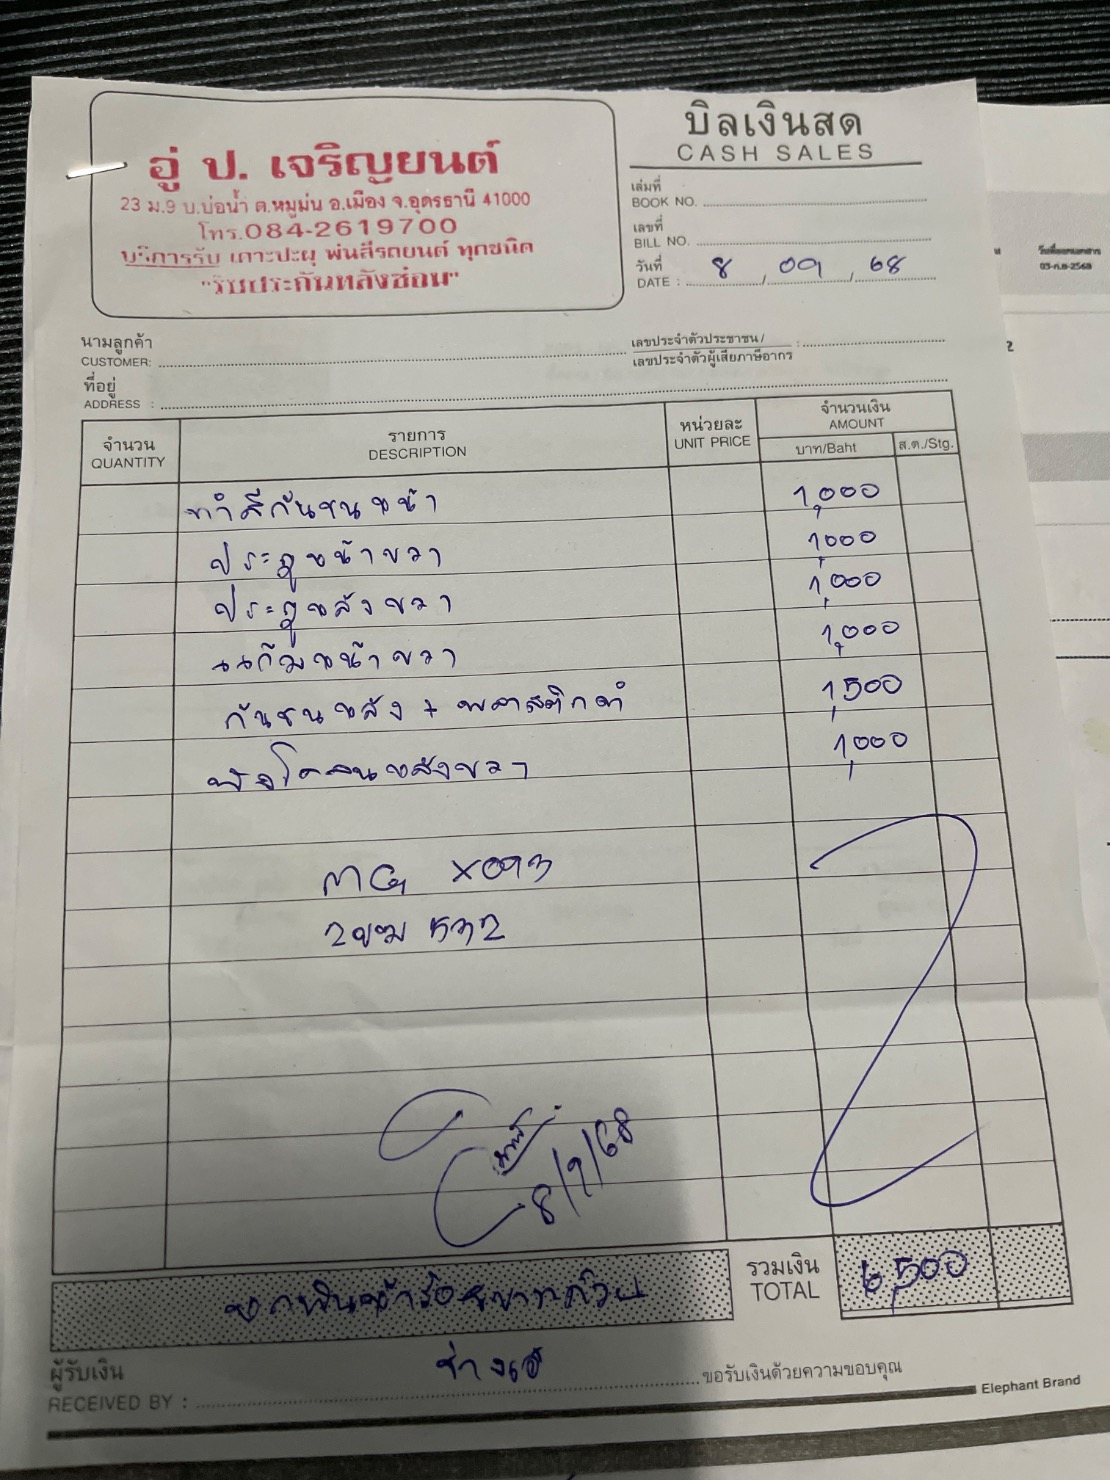 บิลเงินสด
CASH SALES
อู่ ป. เจริญยนต์
23 ม.9 บ.บ่อน้ำ ต.หมูม่น อ.เมือง จ.อุดรธานี 41000
โทร.084-2619700
บริการรับ เคาะปะผุ พ่นสีรถยนต์ ทุกชนิด
"รับประกันหลังซ่อม"
เล่มที่
BOOK NO.
เลขที่
BILL NO.
วันที่
DATE : 8 / 09 / 68
วันที่ออกเอกสาร
03-ก.ย-2568
2
นามลูกค้า
CUSTOMER:
เลขประจำตัวประชาชน / :
เลขประจำตัวผู้เสียภาษีอากร
ที่อยู่
ADDRESS :
จำนวน รายการ หน่วยละ จำนวนเงิน
QUANTITY DESCRIPTION UNIT PRICE AMOUNT
บาท/Baht ส.ต./Stg.
ทำสีกันชนหน้า 1,000
ประตูหน้าขวา 1,000
ประตูหลังขวา 1,000
แก้มหน้าขวา 1,000
กันชนหลัง + พลาสติกดำ 1,500
โคลนหลังขวา 1,000
MG
2ขม 532
8/9/68
รวมเงิน
TOTAL 6,500
หกพันห้าร้อยบาทถ้วน
ผู้รับเงิน
RECEIVED BY : ช่าง ขอรับเงินด้วยความขอบคุณ
Elephant Brand